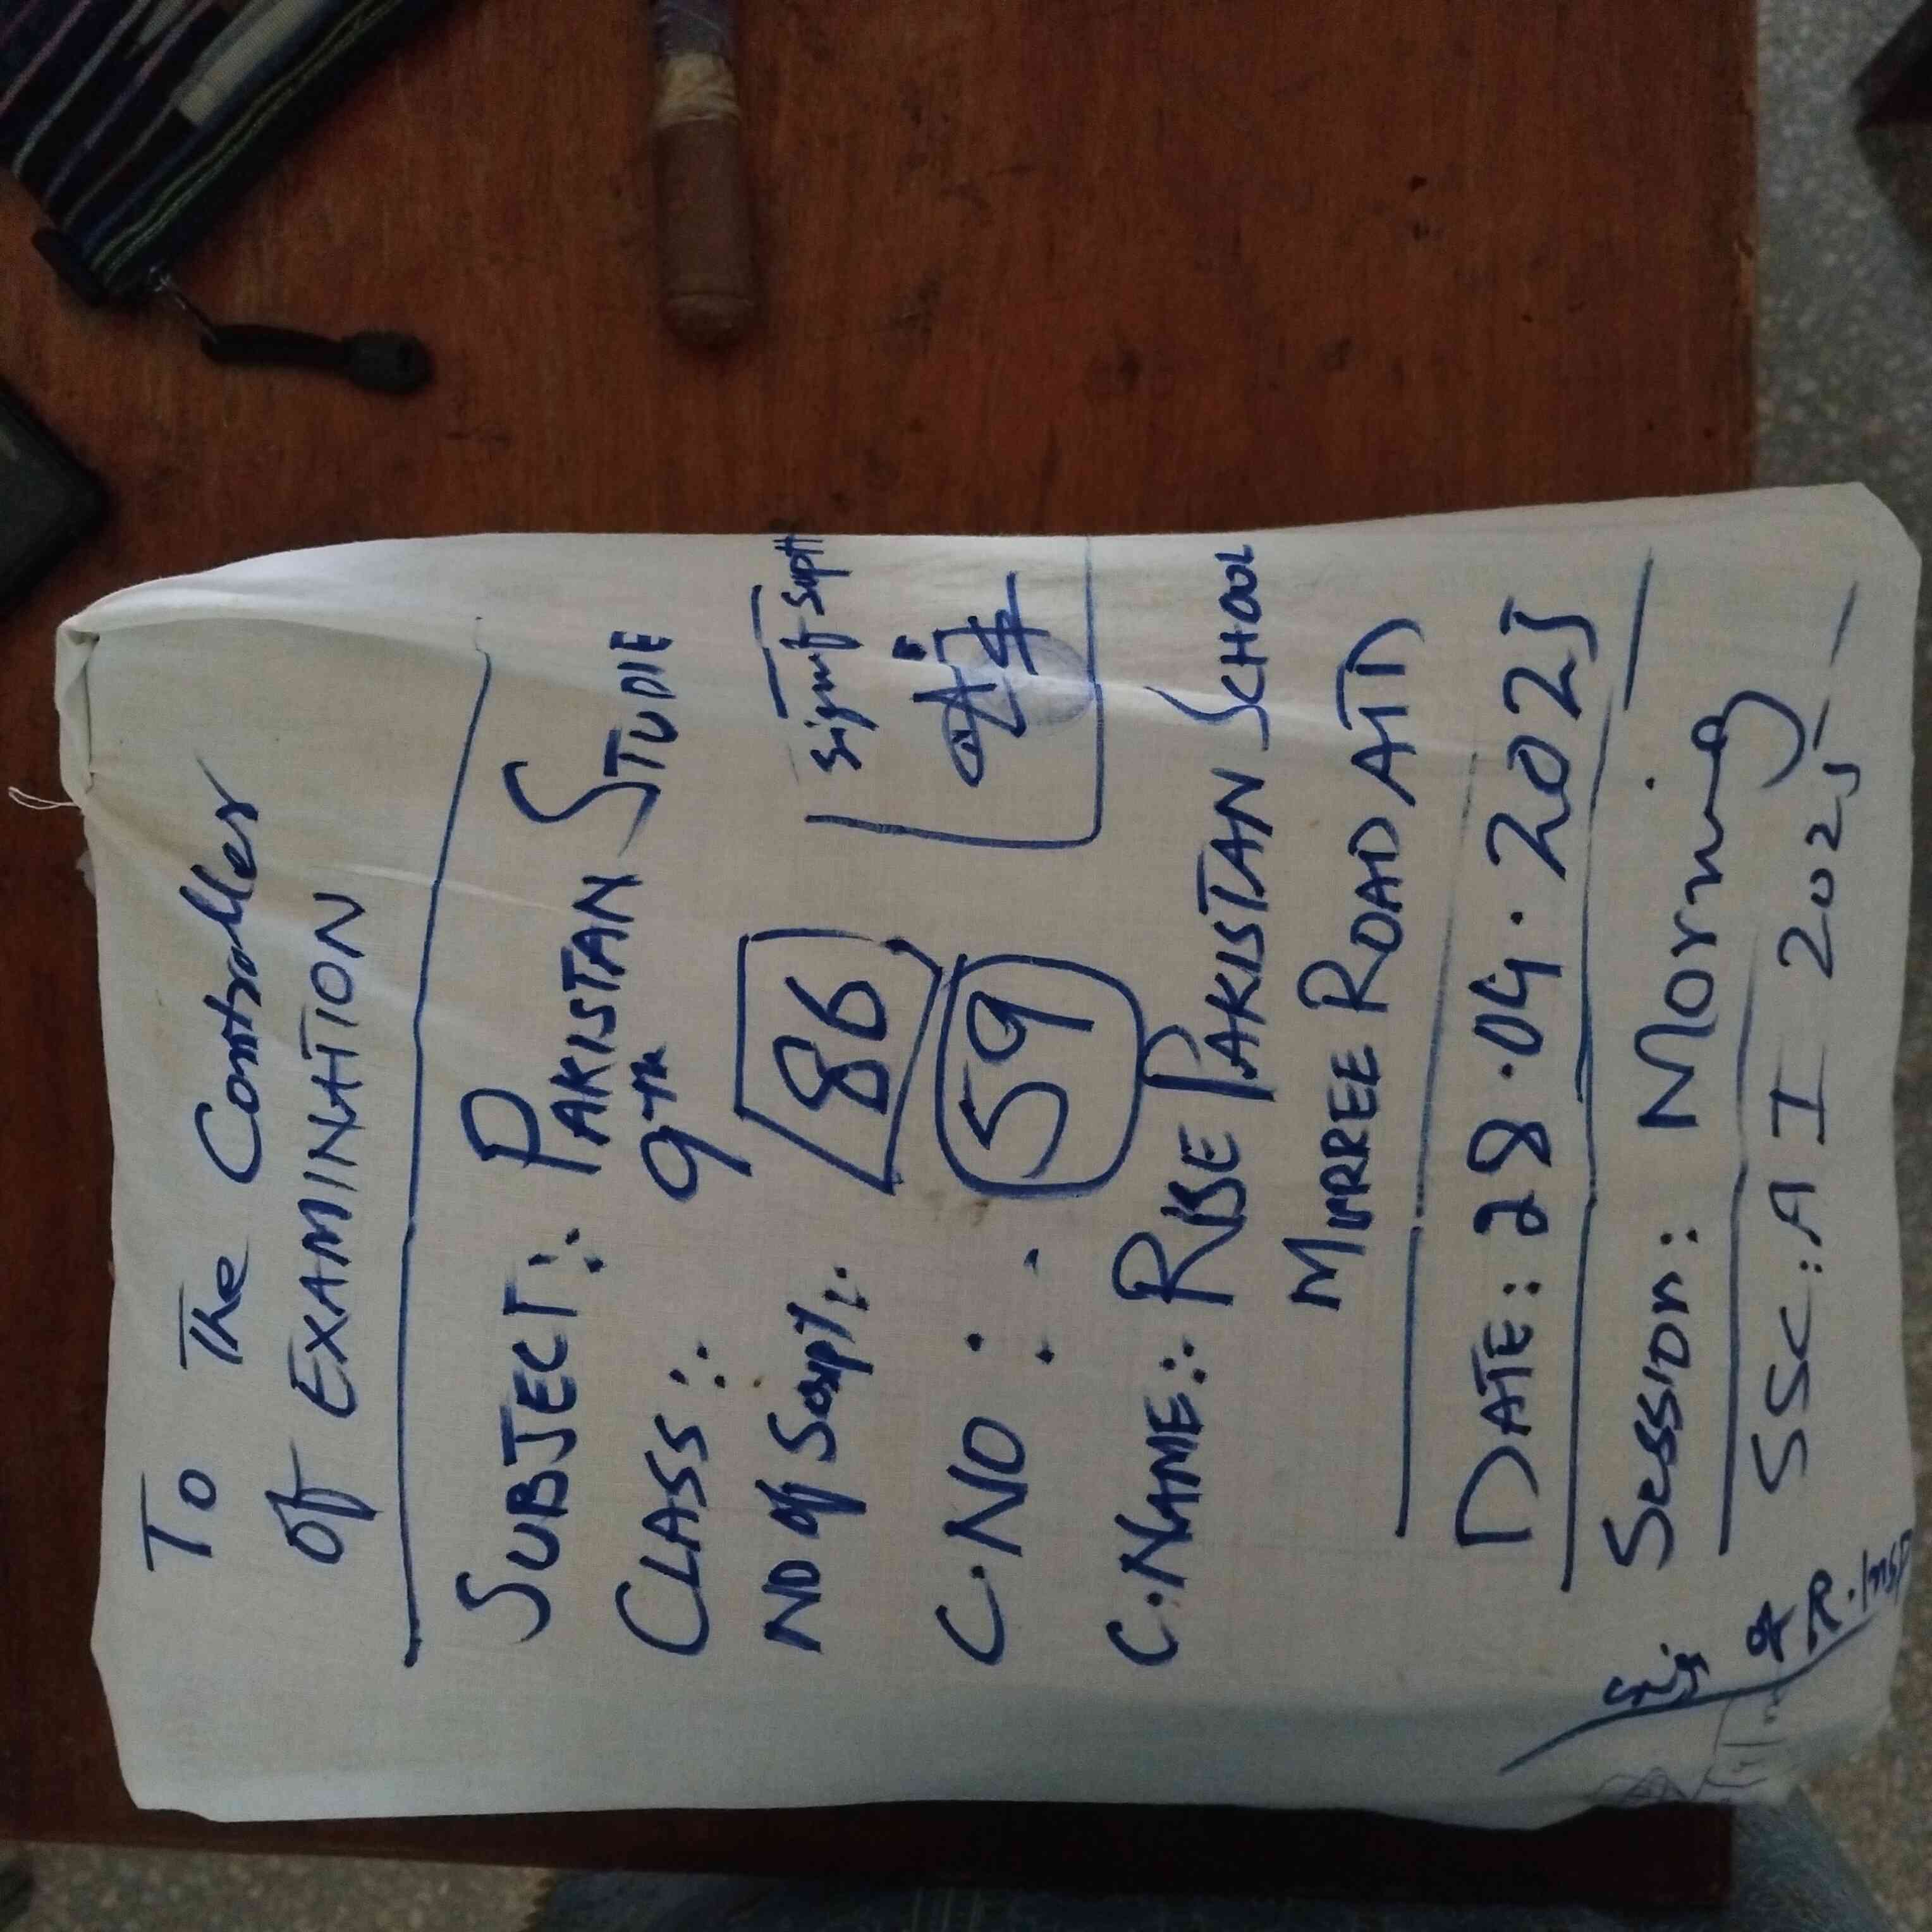 To The Controller
of EXAMINATION
SUBJECT: PAKISTAN STUDIE
CLASS: 9th
NO of Script: 86
Sign of Supdt
C.NO: 59
C.NAME: RISE PAKISTAN SCHOOL
MURREE ROAD ATD
DATE: 28.04.2025
Session: Morning
SSC: A I 2025
Sig of R.Insp